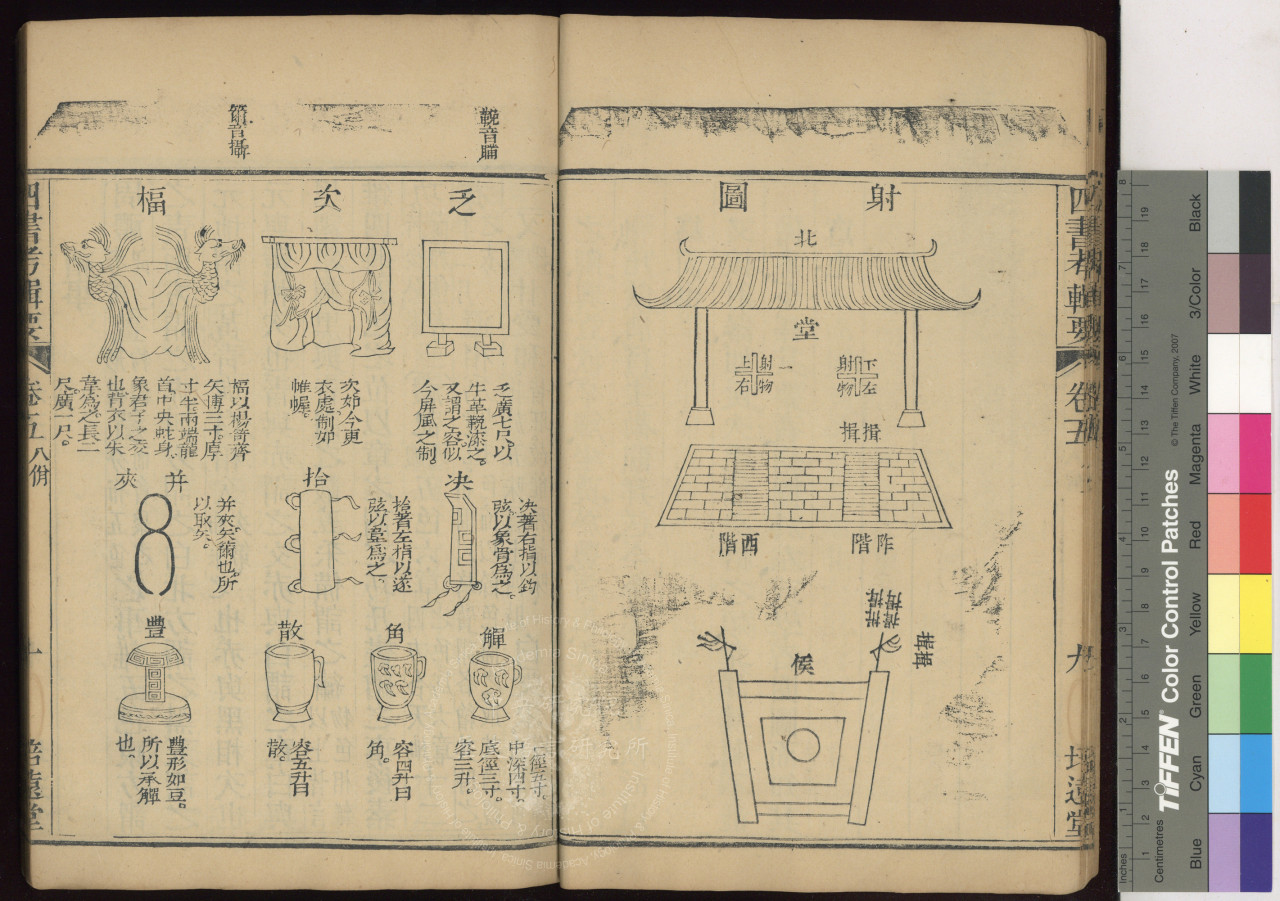 四書考輯要
卷五
九
培遠堂
射圖
北
堂
下左射物
一
射物上右
揖揖
阼階
西階
侯
鞔音瞞
箾音攝
乏
次
楅
乏廣七尺以
牛革鞔漆之。
又謂之容似
今屏風之制
次如今更
衣處制如
帷幄。
楅以楊箭齊
矢博三寸厚
寸半兩端龍
首中央蛇身
象君子之交
也背衣以朱
韋為之長二
尺廣一尺。
決
拾
并夾
决著右指以鈎
弦以象骨爲之。
拾著左梢以遂
弦以韋爲之。
并夾矢箾也所
以取矢。
觶
角
散
豐
口徑五寸。
中深四寸。
底徑三寸。
容三升。
容四升曰
角。
容五升曰
散。
豐形如豆。
所以承觶
也。
四書考輯要
卷五
十
培遠堂
Black
3/Color
White
Magenta
Red
Yellow
Green
Cyan
Blue
TIFFEN Color Control Patches
© The Tiffen Company, 2007
Centimetres
Inches